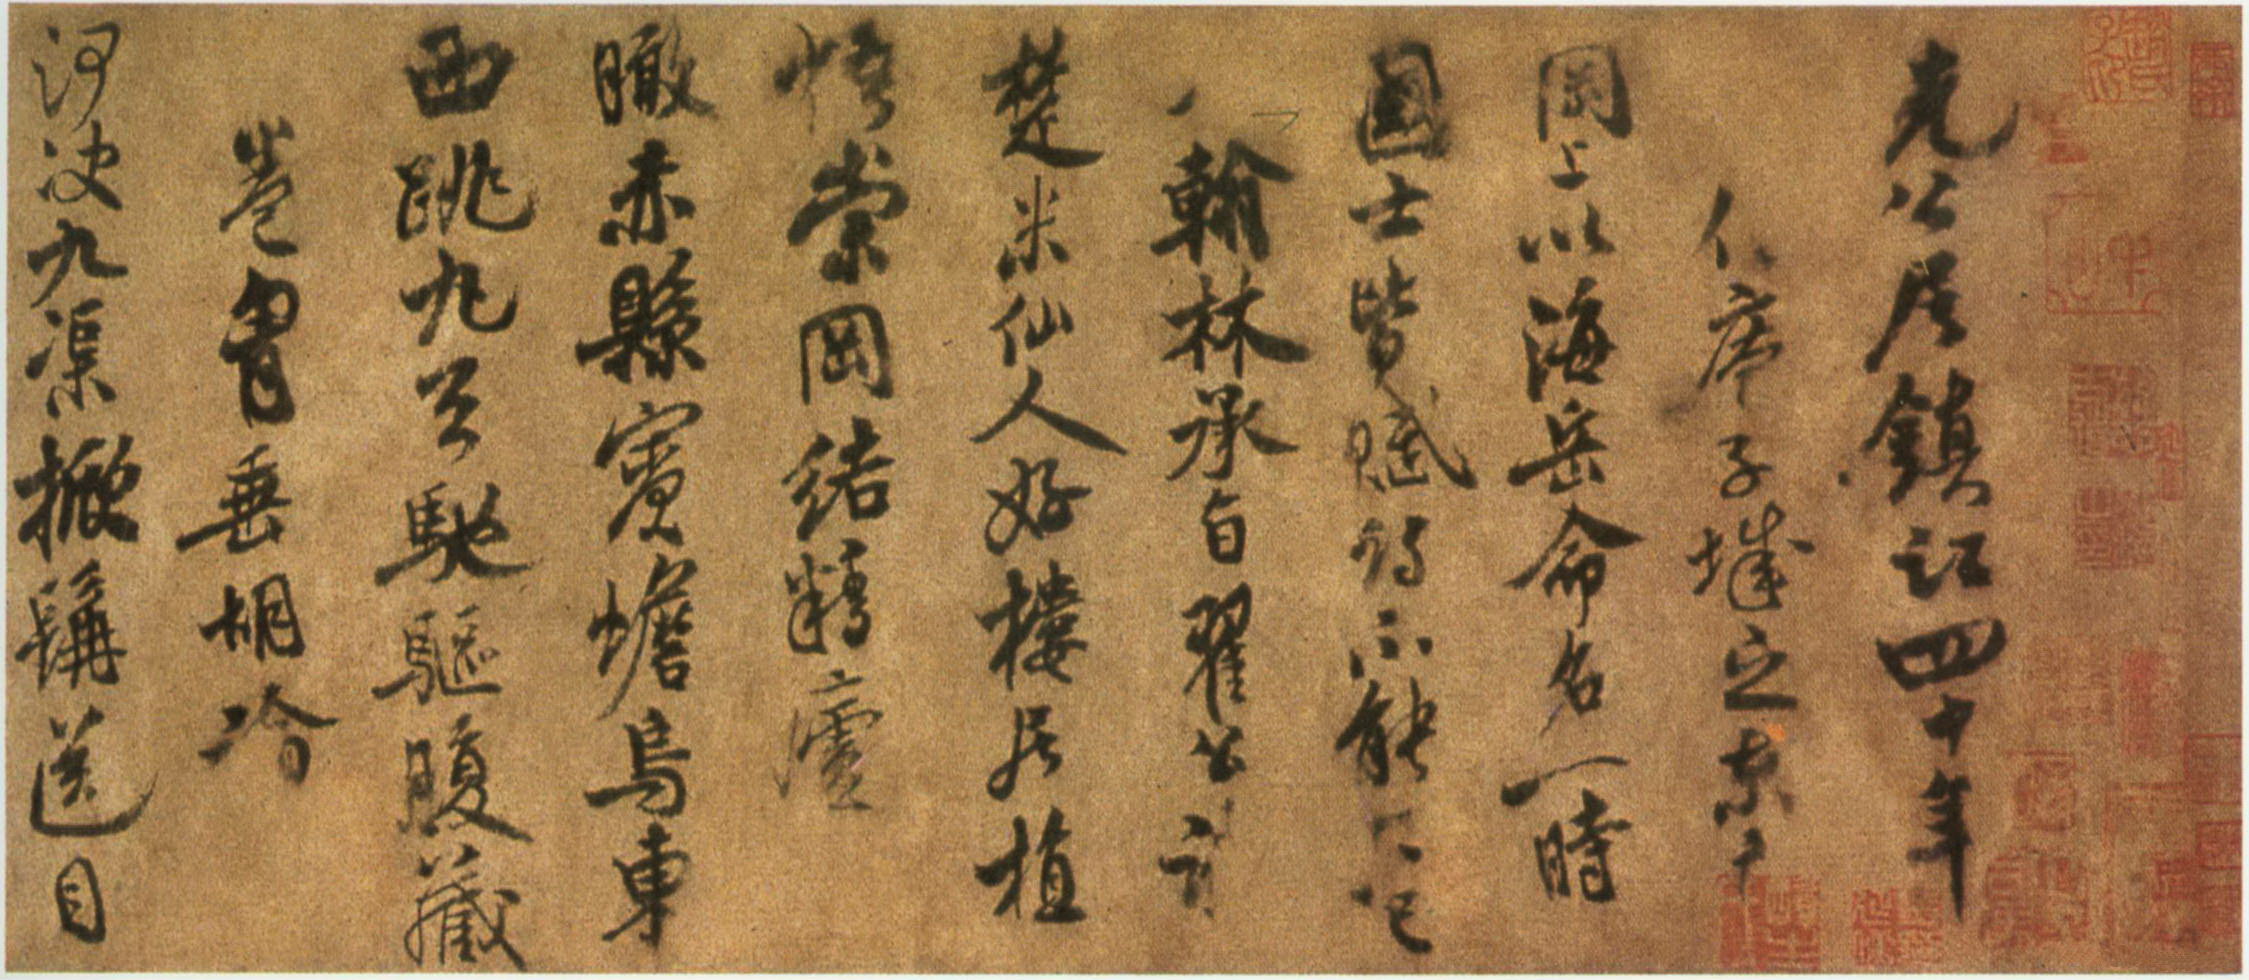 先公居鎮江四十年
作庵于城之東
岡上以海岳命名一時
國士皆賦詩不能盡記
翰林承旨翟公詩
楚米仙人好樓居植
梧崇岡結精廬
瞰赤縣賓蟾烏東
西跳丸馳驅腹藏
卷胷垂胡
河決九渠掀髯送目